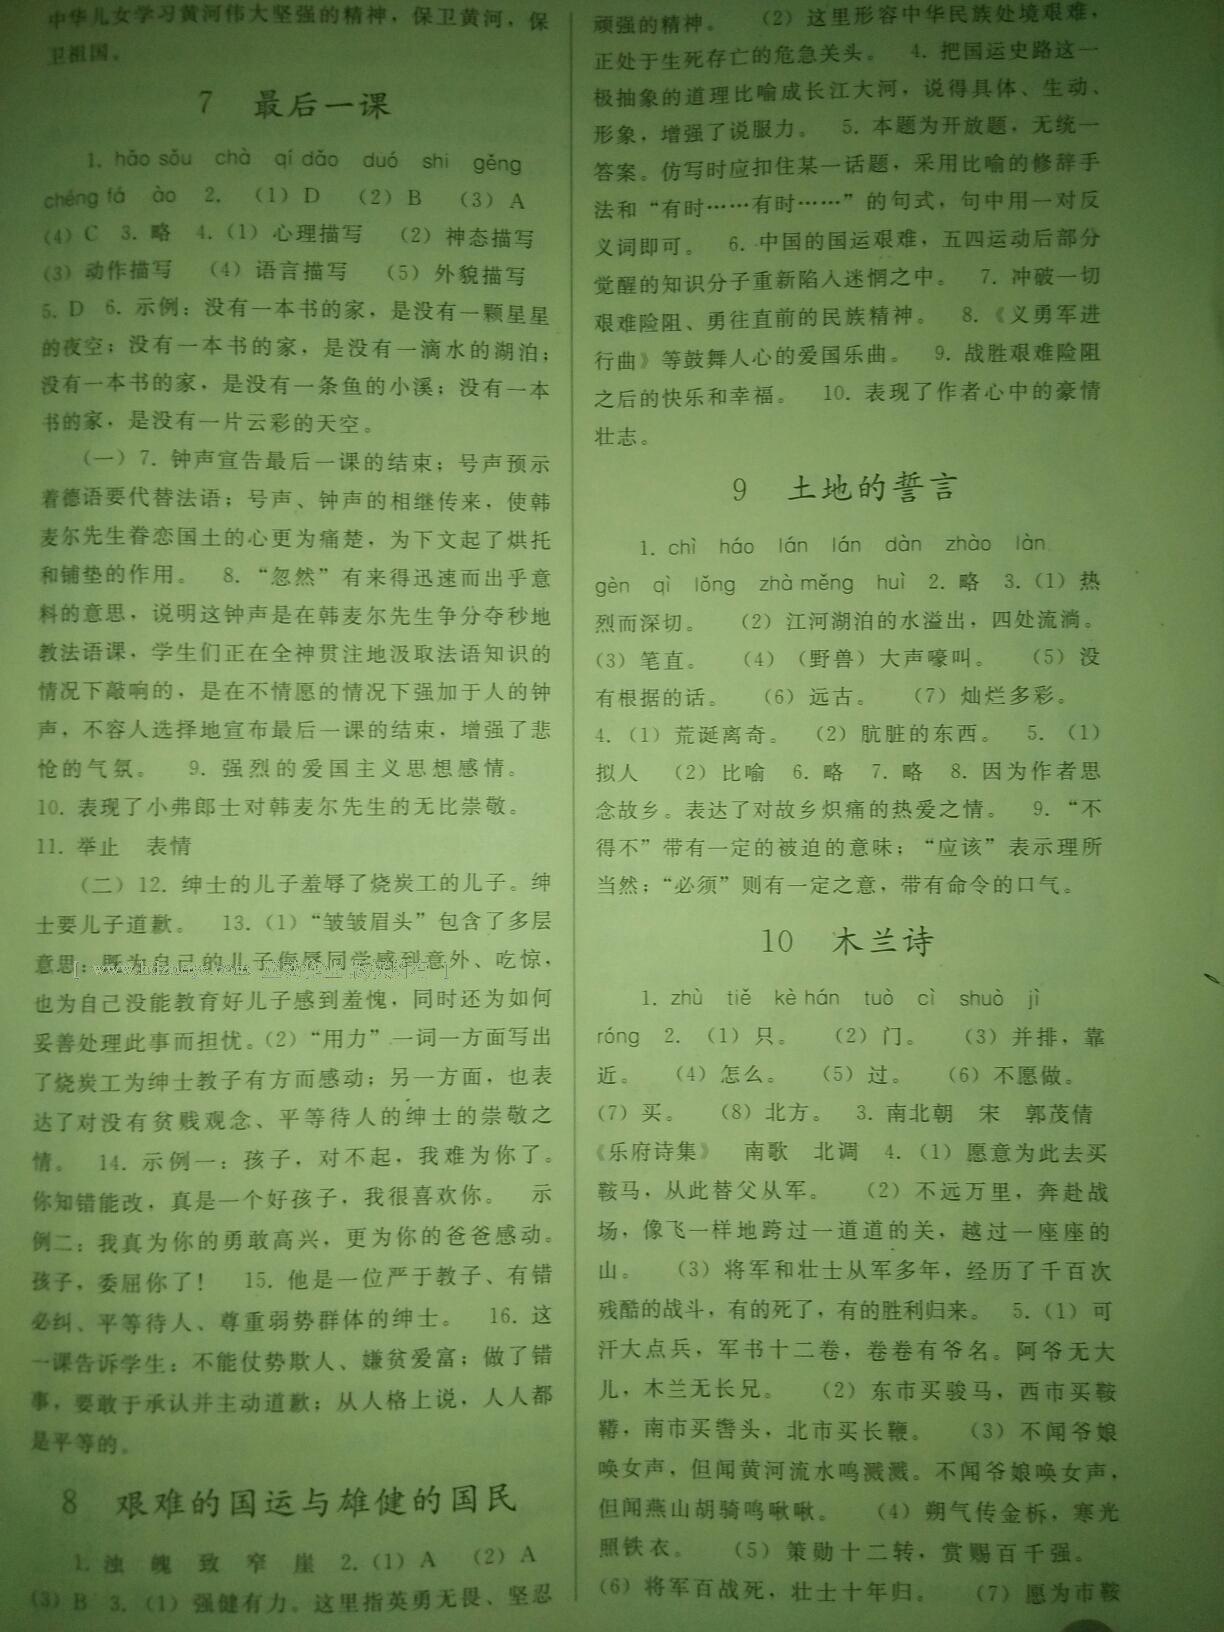 中华儿女学习黄河伟大坚强的精神，保卫黄河，保
卫祖国。
7 最后一课
1. hāo sǒu chà qí dǎo duó shi gěng
chéng fá ào 2. （1）D （2）B （3）A
（4）C 3. 略 4.（1）心理描写 （2）神态描写
（3）动作描写 （4）语言描写 （5）外貌描写
5. D 6. 示例：没有一本书的家，是没有一颗星星
的夜空；没有一本书的家，是没有一滴水的湖泊；
没有一本书的家，是没有一条鱼的小溪；没有一本
书的家，是没有一片云彩的天空。
（一）7. 钟声宣告最后一课的结束；号声预示
着德语要代替法语；号声、钟声的相继传来，使韩
麦尔先生眷恋国土的心更为痛楚，为下文起了烘托
和铺垫的作用。 8. “忽然”有来得迅速而出乎意
料的意思，说明这钟声是在韩麦尔先生争分夺秒地
教法语课，学生们正在全神贯注地汲取法语知识的
情况下敲响的，是在不情愿的情况下强加于人的钟
声，不容人选择地宣布最后一课的结束，增强了悲
怆的气氛。 9. 强烈的爱国主义思想感情。
10. 表现了小弗郎士对韩麦尔先生的无比崇敬。
11. 举止 表情
（二）12. 绅士的儿子羞辱了烧炭工的儿子。绅
士要儿子道歉。 13.（1）“皱皱眉头”包含了多层
意思：既为自己的儿子侮辱同学感到意外、吃惊，
也为自己没能教育好儿子感到羞愧，同时还为如何
妥善处理此事而担忧。（2）“用力”一词一方面写出
了烧炭工为绅士教子有方而感动；另一方面，也表
达了对没有贫贱观念、平等待人的绅士的崇敬之
情。 14. 示例一：孩子，对不起，我难为你了。
你知错能改，真是一个好孩子，我很喜欢你。 示
例二：我真为你的勇敢高兴，更为你的爸爸感动。
孩子，委屈你了！ 15. 他是一位严于教子、有错
必纠、平等待人、尊重弱势群体的绅士。 16. 这
一课告诉学生：不能仗势欺人、嫌贫爱富；做了错
事，要敢于承认并主动道歉；从人格上说，人人都
是平等的。
8 艰难的国运与雄健的国民
1. 浊 魄 致 窄 崖 2.（1）A （2）A
（3）B 3.（1）强健有力。这里指英勇无畏、坚忍
顽强的精神。 （2）这里形容中华民族处境艰难，
正处于生死存亡的危急关头。 4. 把国运史路这一
极抽象的道理比喻成长江大河，说得具体、生动、
形象，增强了说服力。 5. 本题为开放题，无统一
答案。仿写时应扣住某一话题，采用比喻的修辞手
法和“有时……有时……”的句式，句中用一对反
义词即可。 6. 中国的国运艰难，五四运动后部分
觉醒的知识分子重新陷入迷惘之中。 7. 冲破一切
艰难险阻、勇往直前的民族精神。 8.《义勇军进
行曲》等鼓舞人心的爱国乐曲。 9. 战胜艰难险阻
之后的快乐和幸福。 10. 表现了作者心中的豪情
壮志。
9 土地的誓言
1. chì háo lán lán dàn zhào làn
gèn qì lǒng zhà měng huì 2. 略 3.（1）热
烈而深切。 （2）江河湖泊的水溢出，四处流淌。
（3）笔直。 （4）（野兽）大声嚎叫。 （5）没
有根据的话。 （6）远古。 （7）灿烂多彩。
4.（1）荒诞离奇。 （2）肮脏的东西。 5. （1）
拟人 （2）比喻 6. 略 7. 略 8. 因为作者思
念故乡。表达了对故乡炽痛的热爱之情。 9. “不
得不”带有一定的被迫的意味；“应该”表示理所
当然；“必须”则有一定之意，带有命令的口气。
10 木兰诗
1. zhù tiě kè hán tuò cì shuò jì
róng 2.（1）只。 （2）门。 （3）并排，靠
近。 （4）怎么。 （5）过。 （6）不愿做。
（7）买。 （8）北方。 3. 南北朝 宋 郭茂倩
《乐府诗集》 南歌 北调 4.（1）愿意为此去买
鞍马，从此替父从军。 （2）不远万里，奔赴战
场，像飞一样地跨过一道道的关，越过一座座的
山。 （3）将军和壮士从军多年，经历了千百次
残酷的战斗，有的死了，有的胜利归来。 5.（1）可
汗大点兵，军书十二卷，卷卷有爷名。阿爷无大
儿，木兰无长兄。 （2）东市买骏马，西市买鞍
鞯，南市买辔头，北市买长鞭。 （3）不闻爷娘
唤女声，但闻黄河流水鸣溅溅。不闻爷娘唤女声，
但闻燕山胡骑鸣啾啾。 （4）朔气传金柝，寒光
照铁衣。 （5）策勋十二转，赏赐百千强。
（6）将军百战死，壮士十年归。 （7）愿为市鞍